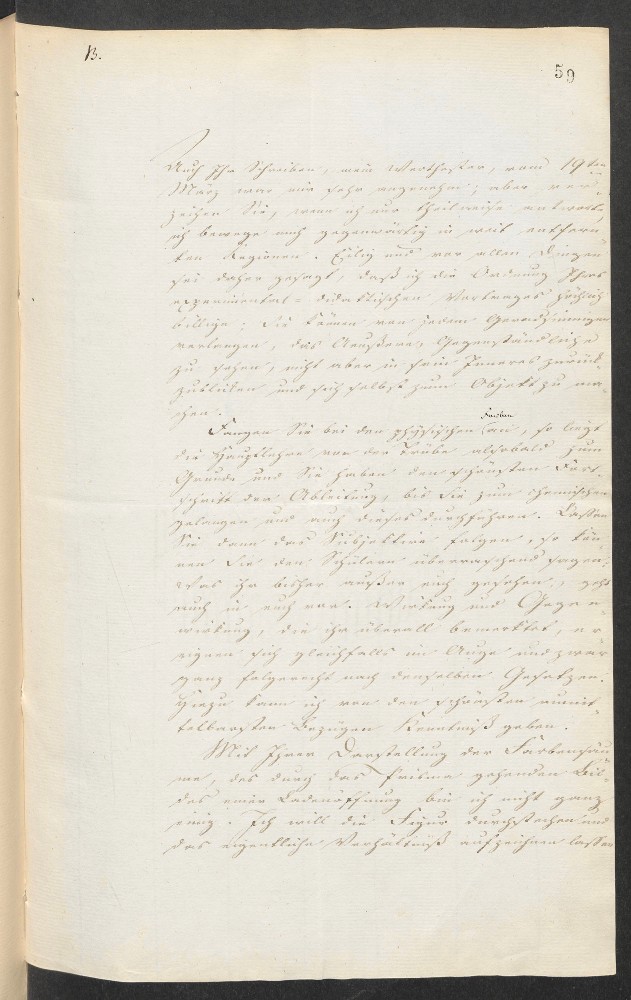 B.
59
Auch Ihr Schreiben, mein Werthester, vom 19ten
März war mir sehr angenehm; aber ver-
zeihen Sie, wenn ich nur theilweise antworte,
ich bewege mich gegenwärtig in weit entfern-
ten Regionen. Eilig und vor allen Dingen
sei daher gesagt, daß ich die Ordnung Ihres
experimental-didaktischen Vortrages höchlich
billige; Sie können von jedem Gereadsinnigen
verlangen, das Aeußere, Gegenständliche
zu sehen, nicht aber in sein Inneres zurück-
zublicken und sich selbst zum Objekt zu ma-
chen.
Farben
Fangen Sie bei den physischen an, so liegt
die Hauptlehre von der Trübe alsobald zum
Grunde und Sie haben den schönsten Fort-
schritt der Ableitung, bis Sie zum chemischen
gelangen und auch dieses durchführen. Lassen
Sie dann das Subjektive folgen, so kön-
nen Sie den Schülern überraschend sagen:
Was ihr bisher außer euch gesehen, geht
auch in euch vor. Wirkung und Gegen-
wirkung, die ihr überall bemerktet, er-
eignen sich gleichfalls im Auge und zwar
ganz folgerecht nach denselben Gesetzen.
Hiezu kann ich von den schönsten unmit-
telbarsten Bezügen Kenntniß geben.
Mit Ihrer Darstellung der Farbensäu-
me, des durch das Prisma gesehenen Bil-
des einer Ladenöffnung bin ich nicht ganz
einig. Ich will die Figur durchstechen und
das eigentliche Verhältniß aufzeichnen lassen